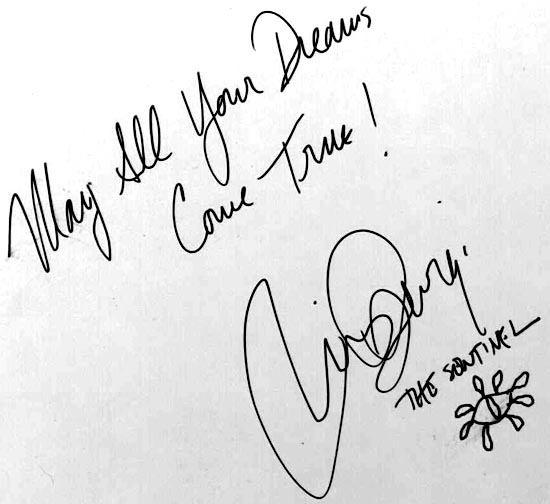 May All Your Dreams
Come True!
THE SENTINEL